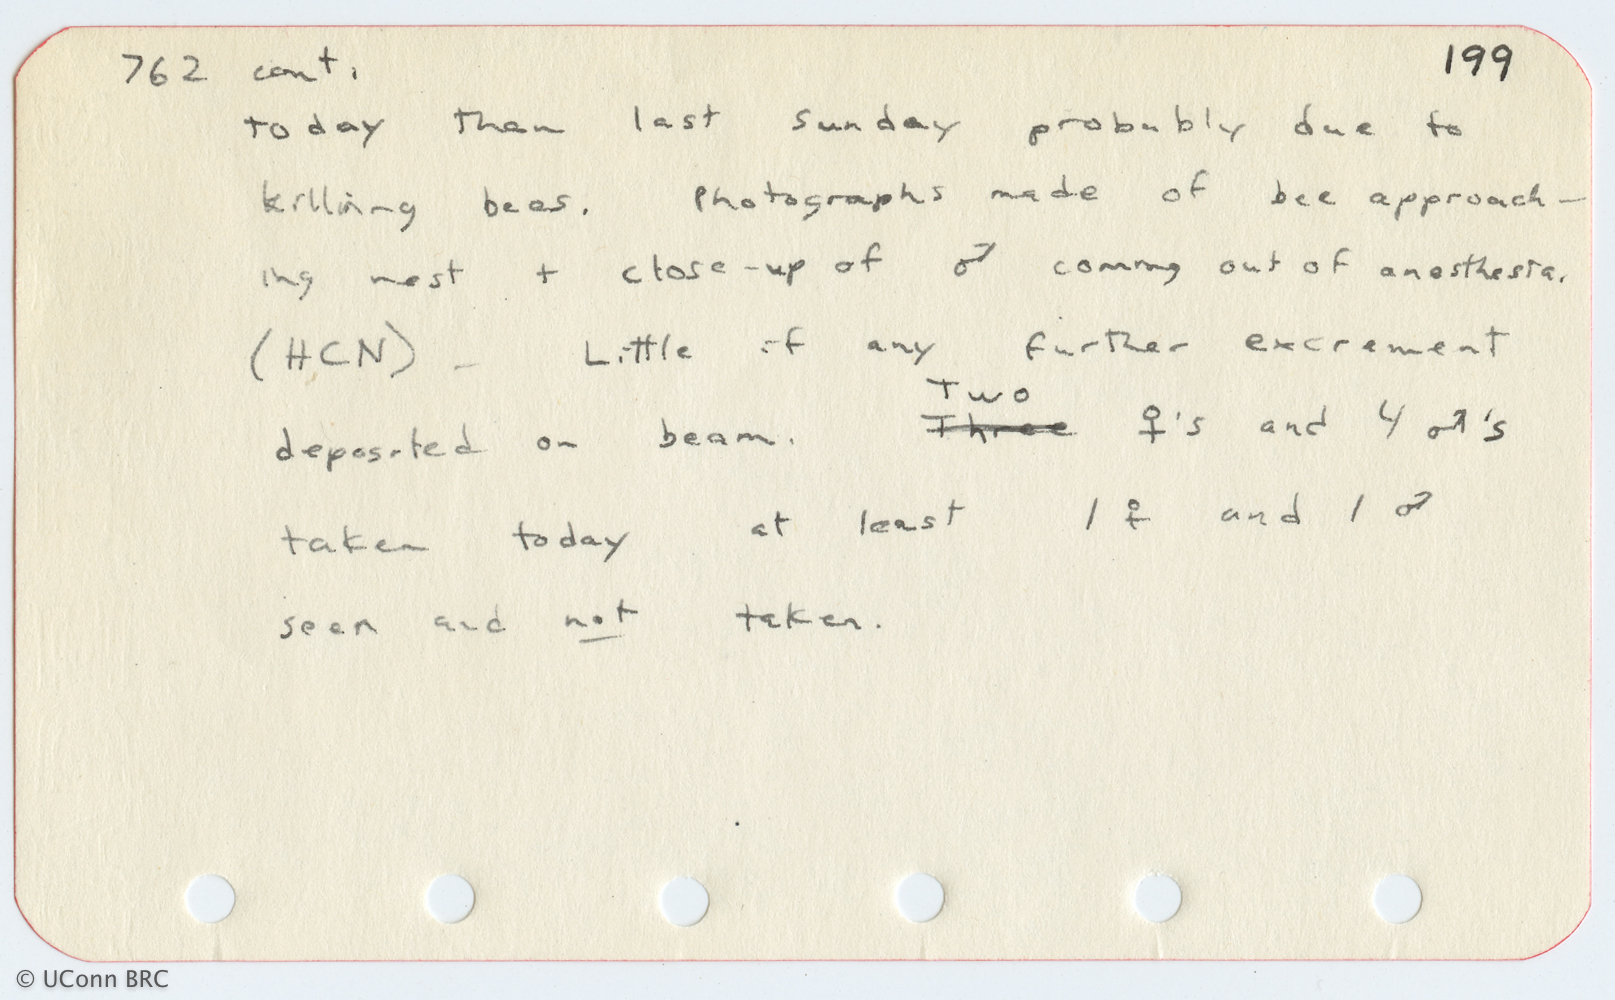 762 cont. 199
today than last Sunday probably due to
killing bees. Photographs made of bee approach-
ing nest + close-up of ♂ coming out of anesthesia.
(HCN) - Little if any further excrement
Two
deposited on beam. ~~Three~~ ♀'s and 4 ♂'s
taken today at least 1 ♀ and 1 ♂
seen and not taken.
© UConn BRC